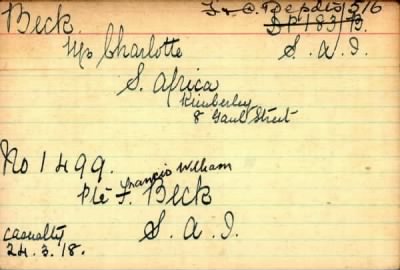 Beck. F. & O. Depdts/516
DP183/B.
Mrs Charlotte S. A. I.
S. Africa
Kimberley
8 Gaul Street
No 1499.
Francis William
Pte F. Beck
S. A. I.
Casualty
24.3.18.